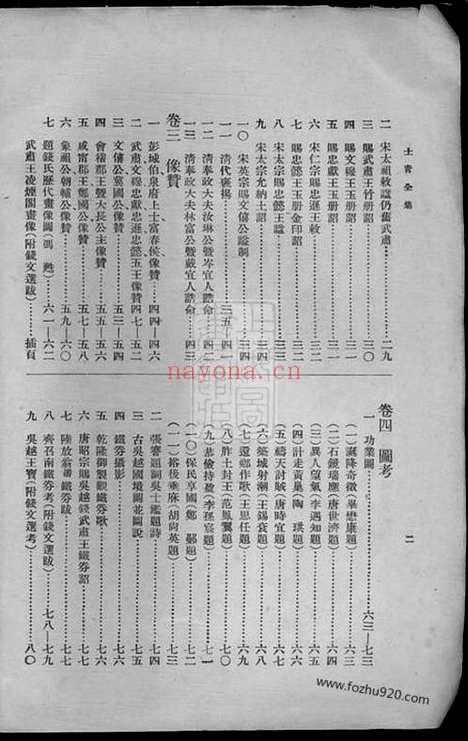 士青全集
二 宋太祖敕諡仍舊武肅……二九
三 賜武肅王竹冊詔……三〇
四 賜文穆王玉冊詔
五 賜忠獻王玉冊詔
六 宋仁宗賜忠遜王敕
七 賜忠懿王玉冊金印詔
八 宋太宗賜忠懿王諡
九 宋太宗允納土詔……三四
一〇 宋英宗賜文僖公諡制
一一 清代褒揚……三五—四一
一二 清奉政大夫汝琳公暨岑宜人誥命……四二
一三 清奉政大夫林富公暨戴宜人誥命……四三
卷三 像贊
一 彭城伯泉府上士富春侯像贊……四四—四六
二 武肅文穆忠獻忠遜忠懿五王像贊
三 文僖公冀國公像贊……五三—五四
四 會稽郡王暨大長公主像贊
五 咸甯郡王鄭國公像贊……五七—五八
六 象祖公朝輔公像贊……五九—六〇
七 題錢氏歷代畫像圖……六一—六二
武肅王凌煙閣畫像(附錢文選跋)……插頁
卷四 圖考
二
一 功業圖……六三—七三
(一)誕降奇徵(畢懋康題)
(二)石鏡瑞應(唐世濟題)……六四
(三)異人望氣(李遇知題)……六五
(四)計走黃巢(陶珽題)……六六
(五)禱天討賊(唐時宜題)……六七
(六)築城射潮(王錫袞題)……六八
(七)還鄉作歌(王思任題)……六九
(八)胙土封王(范鳳翼題)……七〇
(九)恭儉持盈(李孫宸題)……七一
(一〇)保民享國(鄭鄤題)……七二
(一一)裕後乘麻(胡尚英題)……七三
二 張賽題詞吳士鑑題詩……七四
三 古吳越國境圖花圖說……七五
四 鐵券攝影……七六
五 乾隆御製觀鐵券歌……七六
六 唐昭宗賜吳越錢武肅王鐵券詔……七七
七 陸放翁書鐵券跋……七七
八 齊召南鐵券考(附錢文選跋)……七八—七九
九 吳越王寶(附錢文選考)……八〇
nayona.cn
www.fozhu920.com